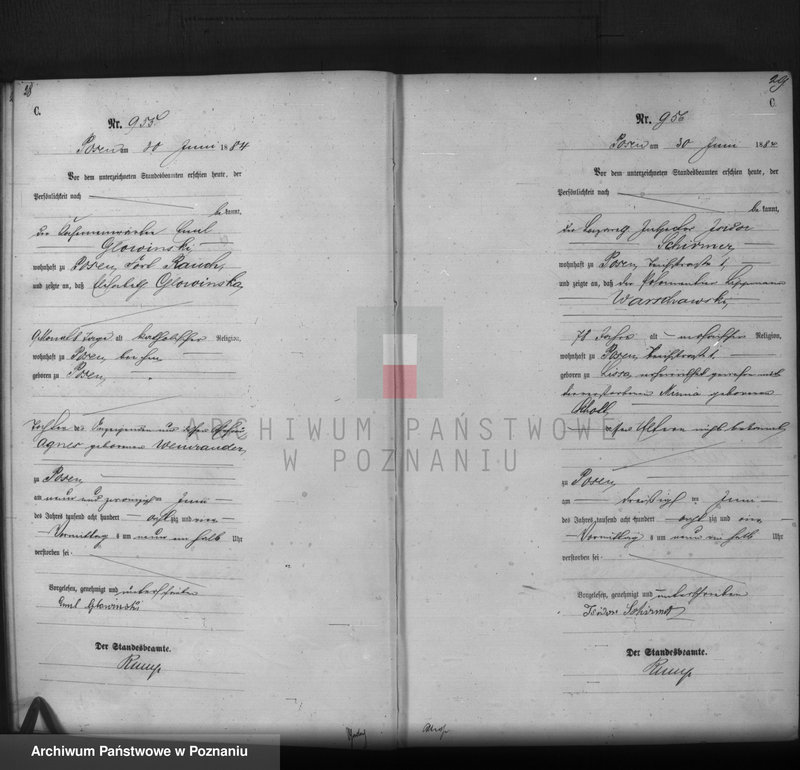 28
C.
Nr. 955
Posen am 30 Juni 1884
Vor dem unterzeichneten Standesbeamten erschien heute, der
Persönlichkeit nach
be kannt,
Emil
Glowinski
wohnhaft zu Posen, Fort Rauch,
und zeigte an, daß Elisabeth Glowinska,
alt katholischer Religion,
wohnhaft zu Posen bei ihm
geboren zu Posen,
Tochter des Anzeigenden und dessen Ehefrau
Agnes geborenen
zu Posen
am neun und zwanzigsten Juni
des Jahres tausend acht hundert achtzig und vier
Vormittag s um neun ein halb Uhr
verstorben sei.
Vorgelesen, genehmigt und unterschrieben
Emil Glowinski
Der Standesbeamte.
Rump
29
C.
Nr. 956
Posen am 30 Juni 1884
Vor dem unterzeichneten Standesbeamten erschien heute, der
Persönlichkeit nach
be kannt,
der Lazareth Inspector Isidor
Schirmer,
wohnhaft zu Posen,
und zeigte an, daß der
Warschawski,
78 Jahre alt mosaischer Religion,
wohnhaft zu Posen,
geboren zu Lissa, verheirathet gewesen mit
der verstorbenen geborenen
dessen Eltern nicht bekannt,
zu Posen,
am dreißigsten Juni
des Jahres tausend acht hundert achtzig und vier
Vormittag s um neun ein halb Uhr
verstorben sei.
Vorgelesen, genehmigt und unterschrieben
Isidor Schirmer
Der Standesbeamte.
Rump
ARCHIWUM PAŃSTWOWE
W POZNANIU
Archiwum Państwowe w Poznaniu